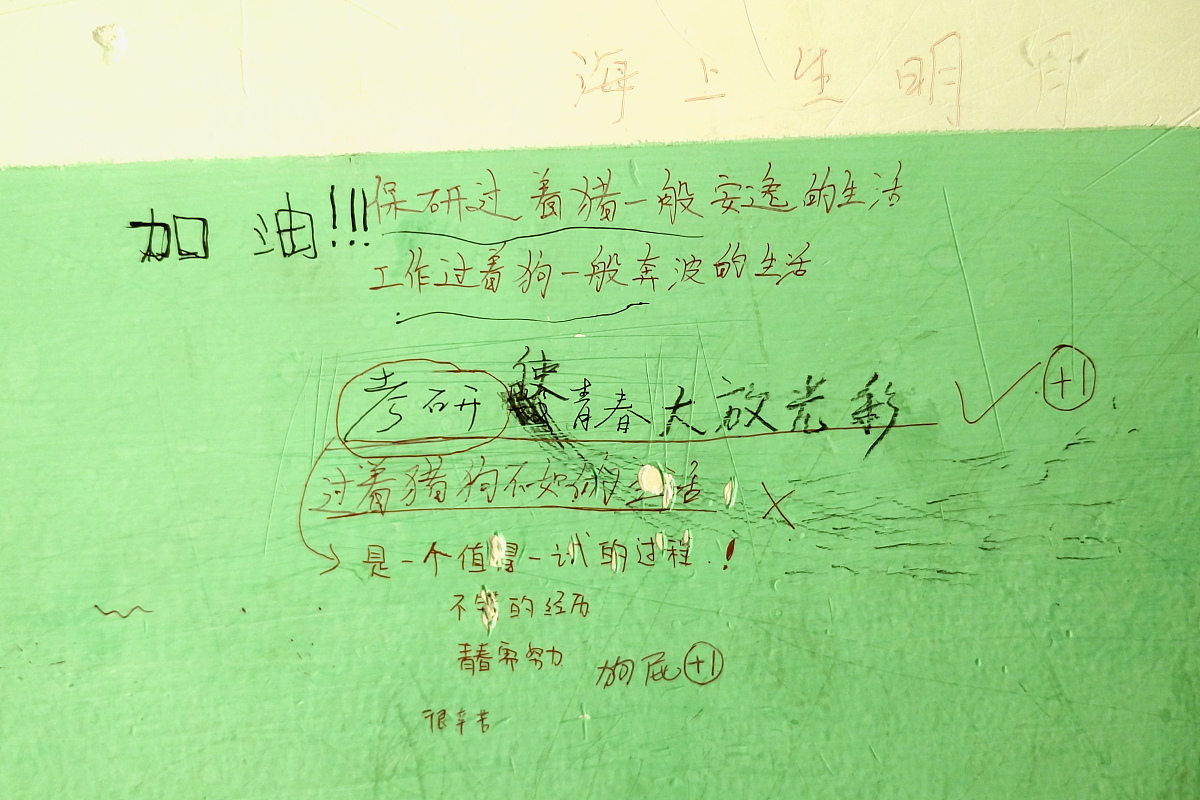 海上生明月
加油!!!
保研过着猪一般安逸的生活
工作过着狗一般奔波的生活
考研使青春大放光彩 ✓ +1
过着猪狗不如的生活 ×
是一个值得一试的过程.!
不错的经历
青春需努力
狗屁 +1
很辛苦